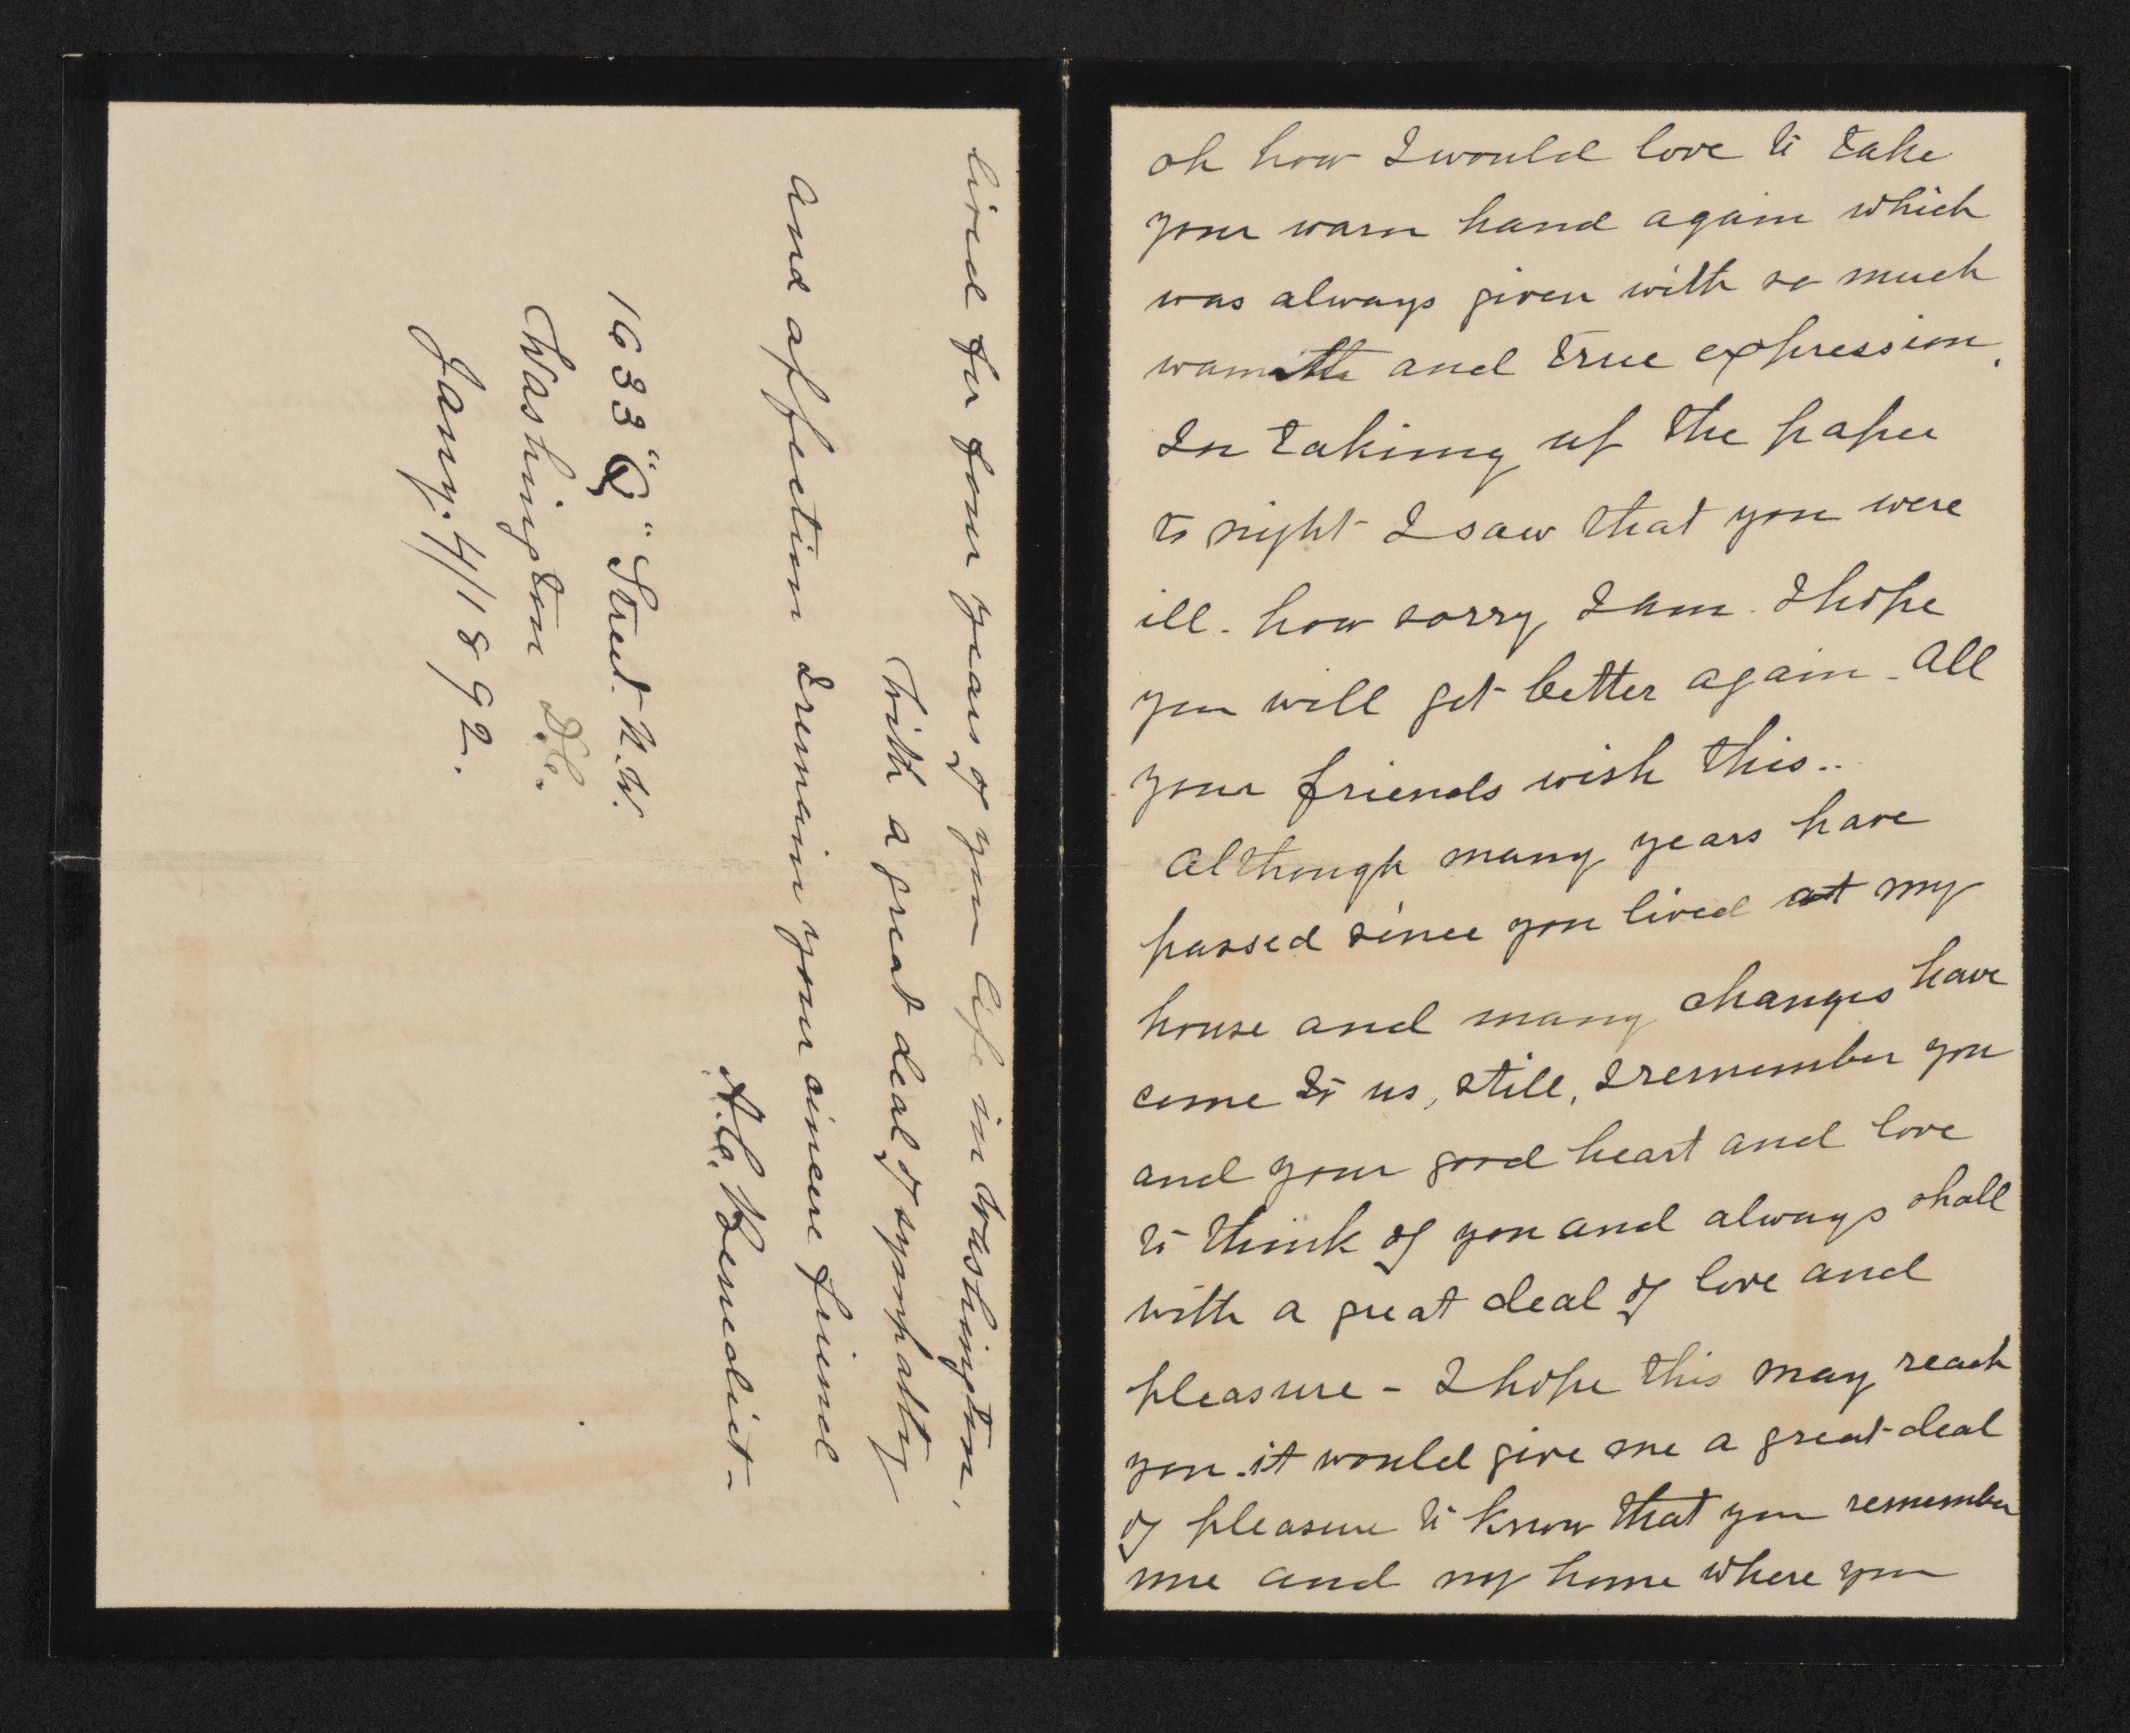 oh how I would love to take
your warm hand again which
was always given with so much
warmth and true expression.
In taking up the paper
to night I saw that you were
ill. how sorry I am. I hope
you will get better again. All
your friends wish this..
Although many years have
passed since you lived at my
house and many changes have
come to us, still, I remember you
and your good heart and love
to think of you and always shall
with a great deal of love and
pleasure - I hope this may reach
you. it would give me a great deal
of pleasure to know that you remember
me and my home where you
lived for four years of your life in Washington,
With a great deal of sympathy
and affection I remain your sincere friend
A. C. Benedict -
1633 "Q" Street. N.W.
Washington D.C.
Jany. 4/1892.